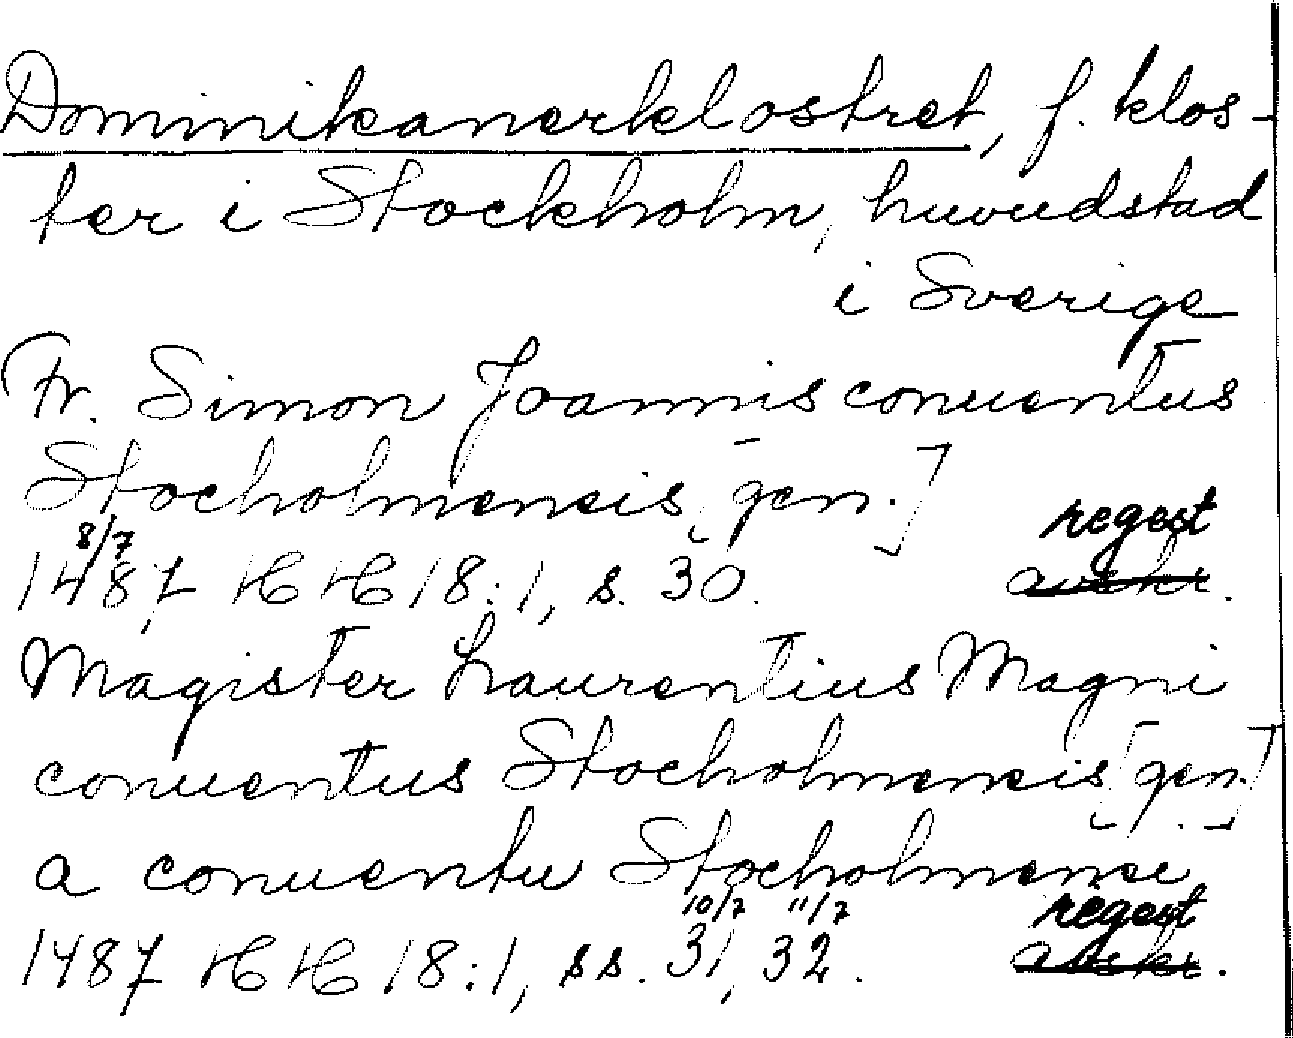 Dominikanerklostret, f. klos-
ter i Stockholm, huvudstad
i Sverige
Fr. Simon Joannis conuentus
Stocholmensis [gen.]
8/7 regest
1487 HH 18:1, s. 30. avskr.
Magister Laurentius Magni
conuentus Stocholmensis [gen.]
a conuentu Stocholmense
10/7 11/7 regest
1487 HH 18:1, ss. 31, 32. avskr.